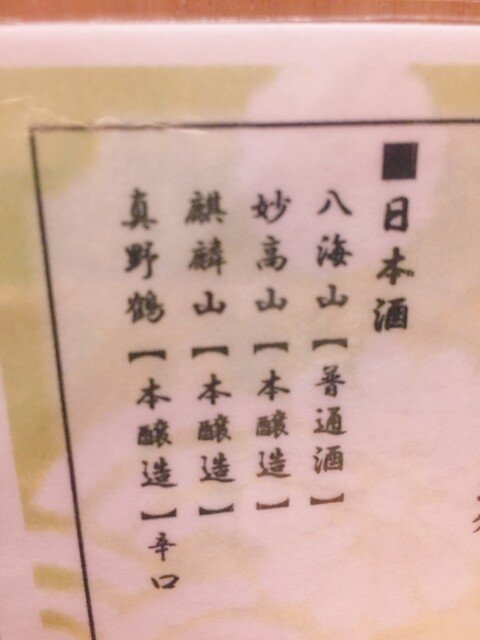 ■日本酒
八海山【普通酒】
妙高山【本醸造】
麒麟山【本醸造】
真野鶴【本醸造】辛口